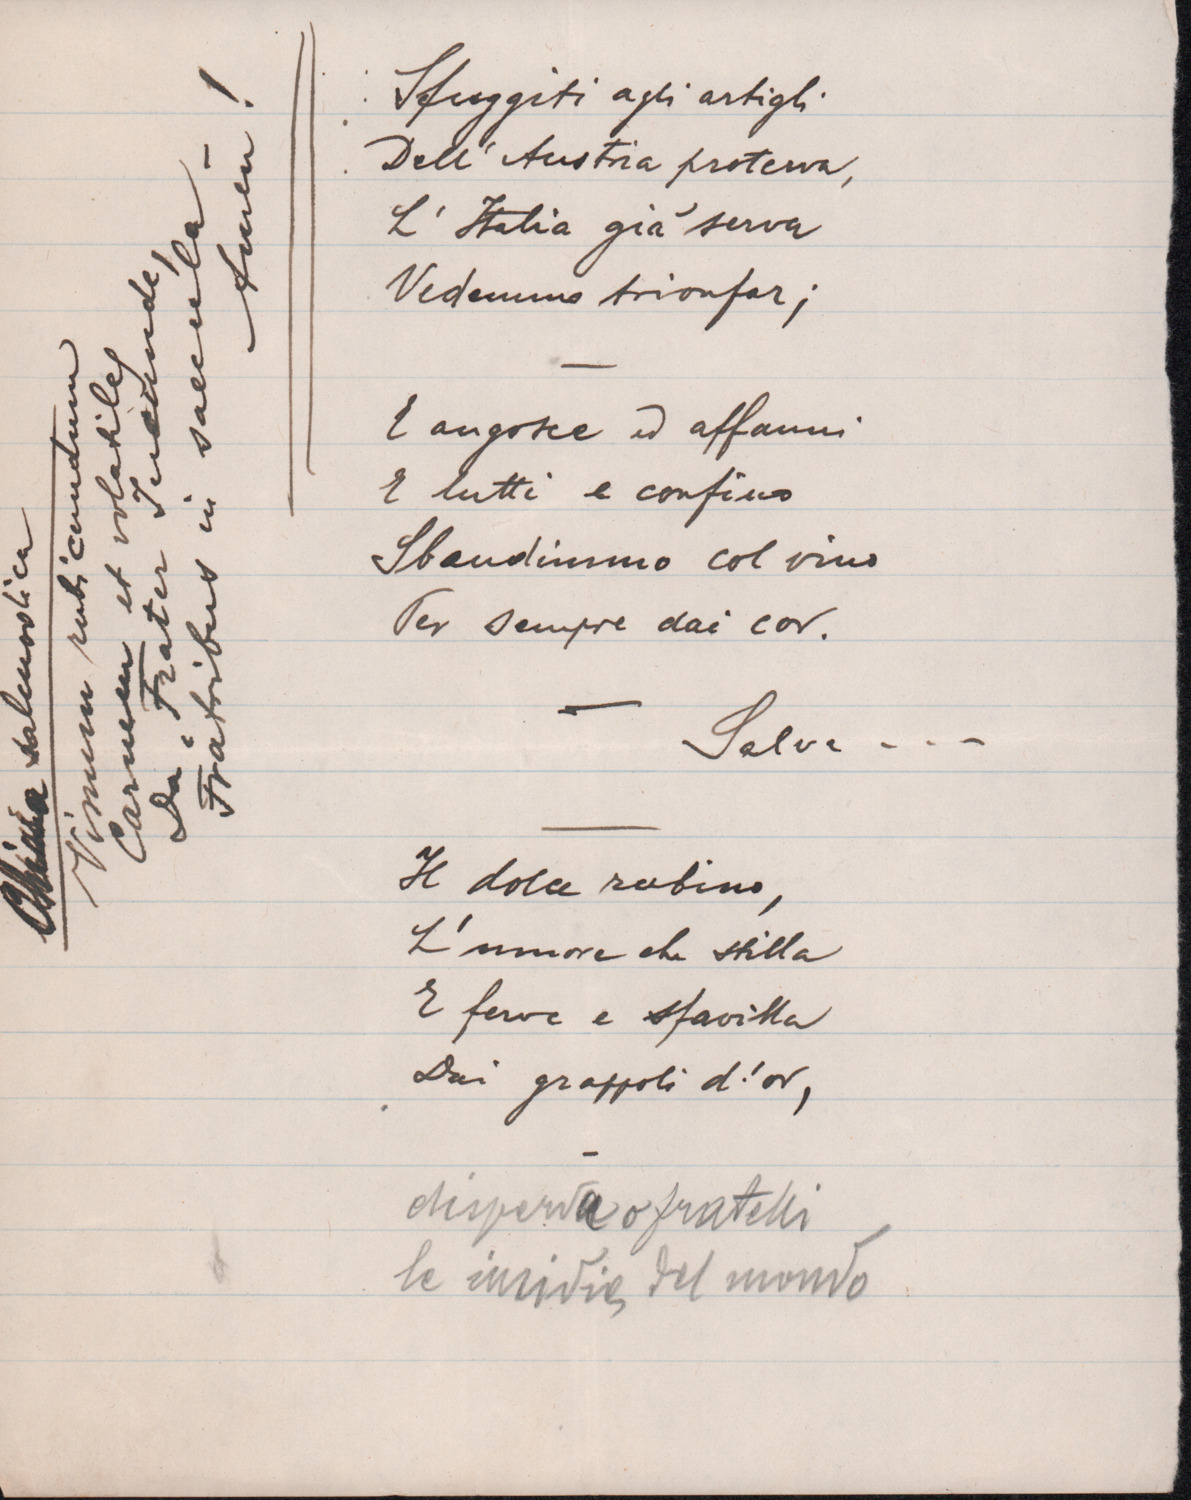 Sfuggiti agli artigli
Dell' Austria proterva,
L' Italia già serva
Vedemmo trionfar;
E angosce ed affanni
E lutti e confino
Sbandimmo col vino
Per sempre dai cor.
Salve - - - -
Il dolce rubino,
L'umore che stilla
E ferve e sfavilla
Dai grappoli d'or,
disperda o fratelli
le insidie del mondo
Chiosa salmodica
Vinum rubicundum
Carmen et volatile
Da, Frater Jucunde,
Fratribus in saecula -
Amen!